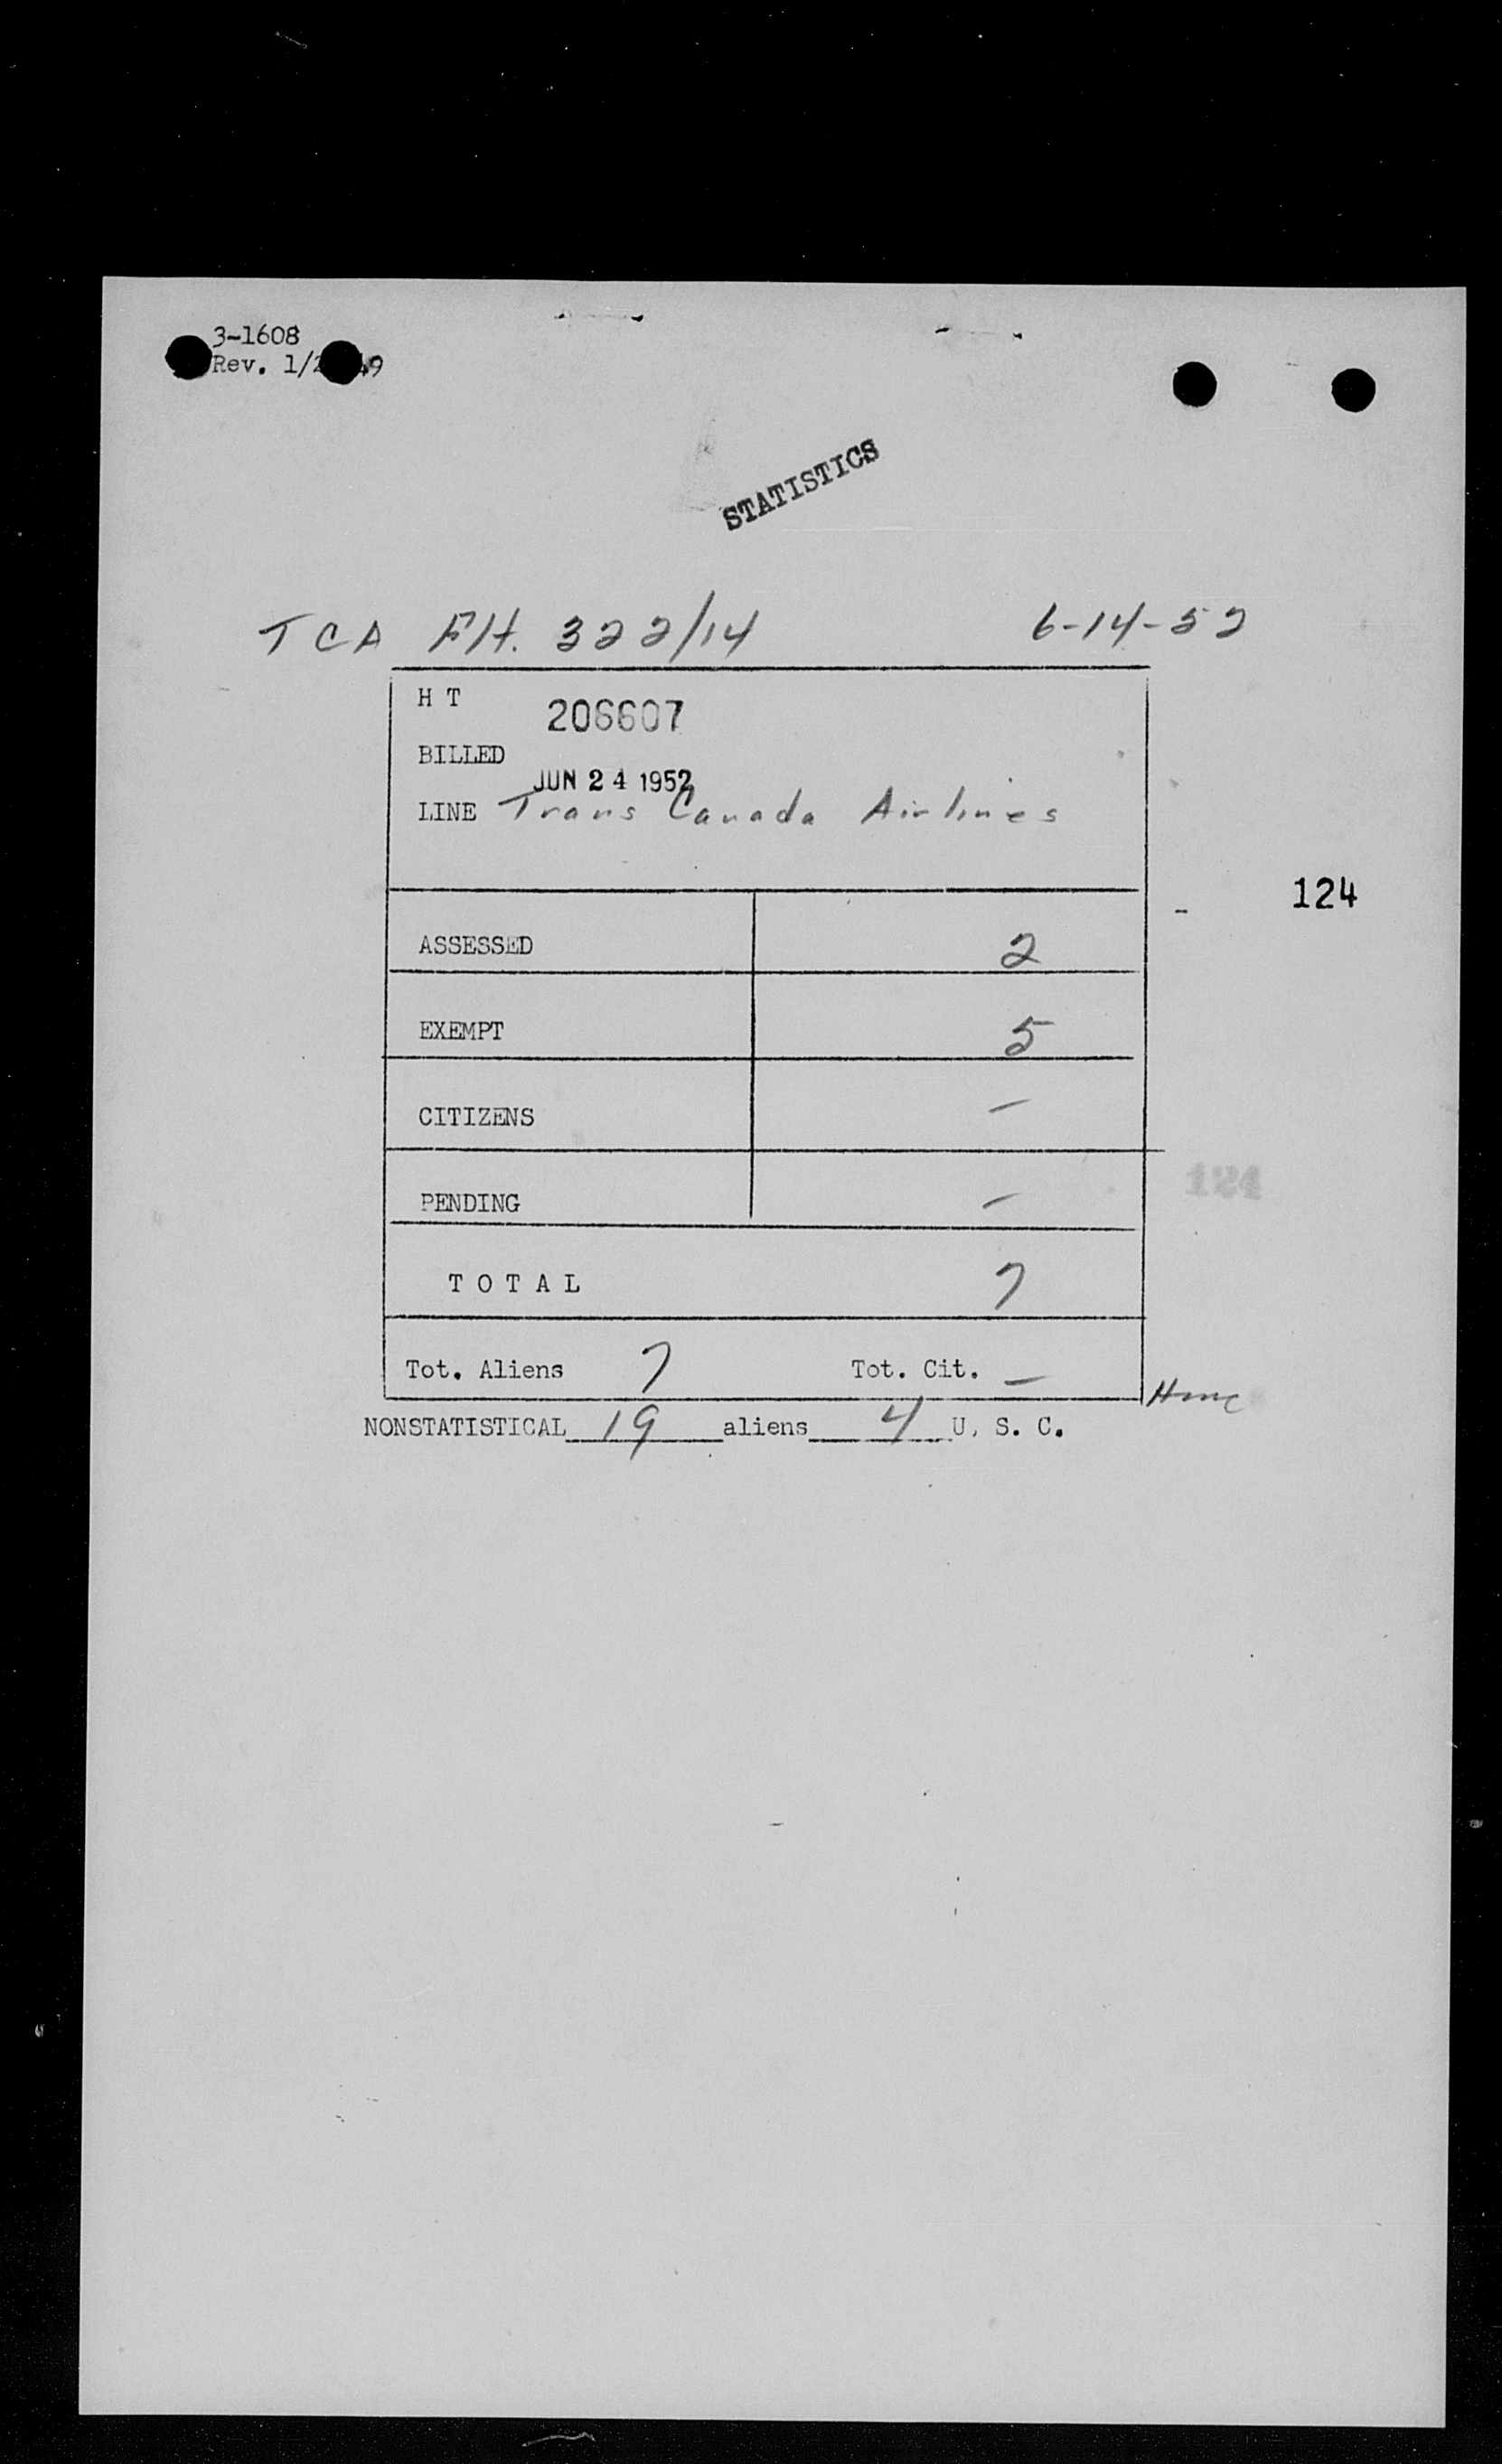 3-1608
Rev. 1/2 49
STATISTICS
TCA Flt. 322/14 6-14-52
H T 206607
BILLED
JUN 24 1952
LINE Trans Canada Airlines
124
ASSESSED 2
EXEMPT 5
CITIZENS –
PENDING –
124
TOTAL 7
Tot. Aliens 7 Tot. Cit. –
NONSTATISTICAL 19 aliens 4 U. S. C.